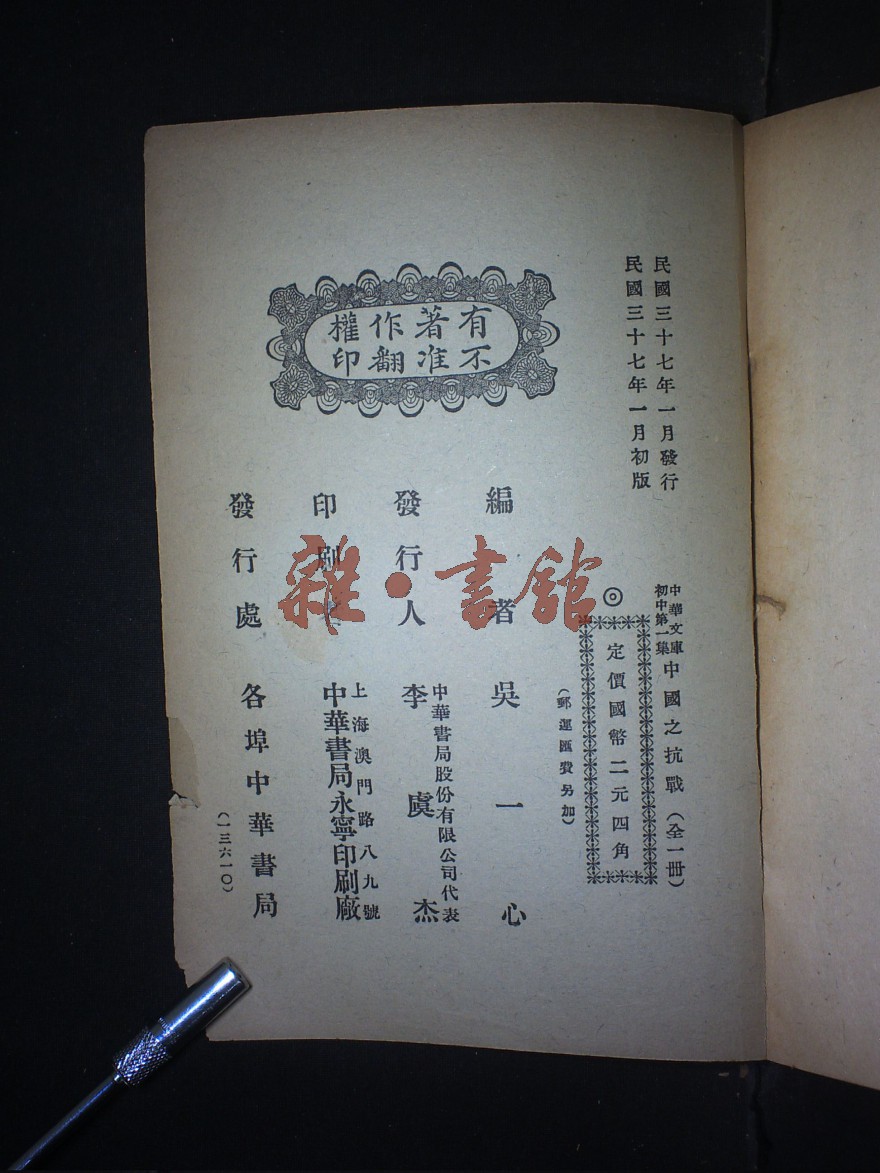 民國三十七年一月發行
民國三十七年一月初版
中華文庫
初中第一集
中國之抗戰（全一冊）
◎
定價國幣二元四角
（郵運匯費另加）
有著作權
不准翻印
編者 吳一心
發行人 中華書局股份有限公司代表
李虞杰
印刷者 上海澳門路八九號
中華書局永寧印刷廠
發行處 各埠中華書局
（一三六一〇）
雜·書館